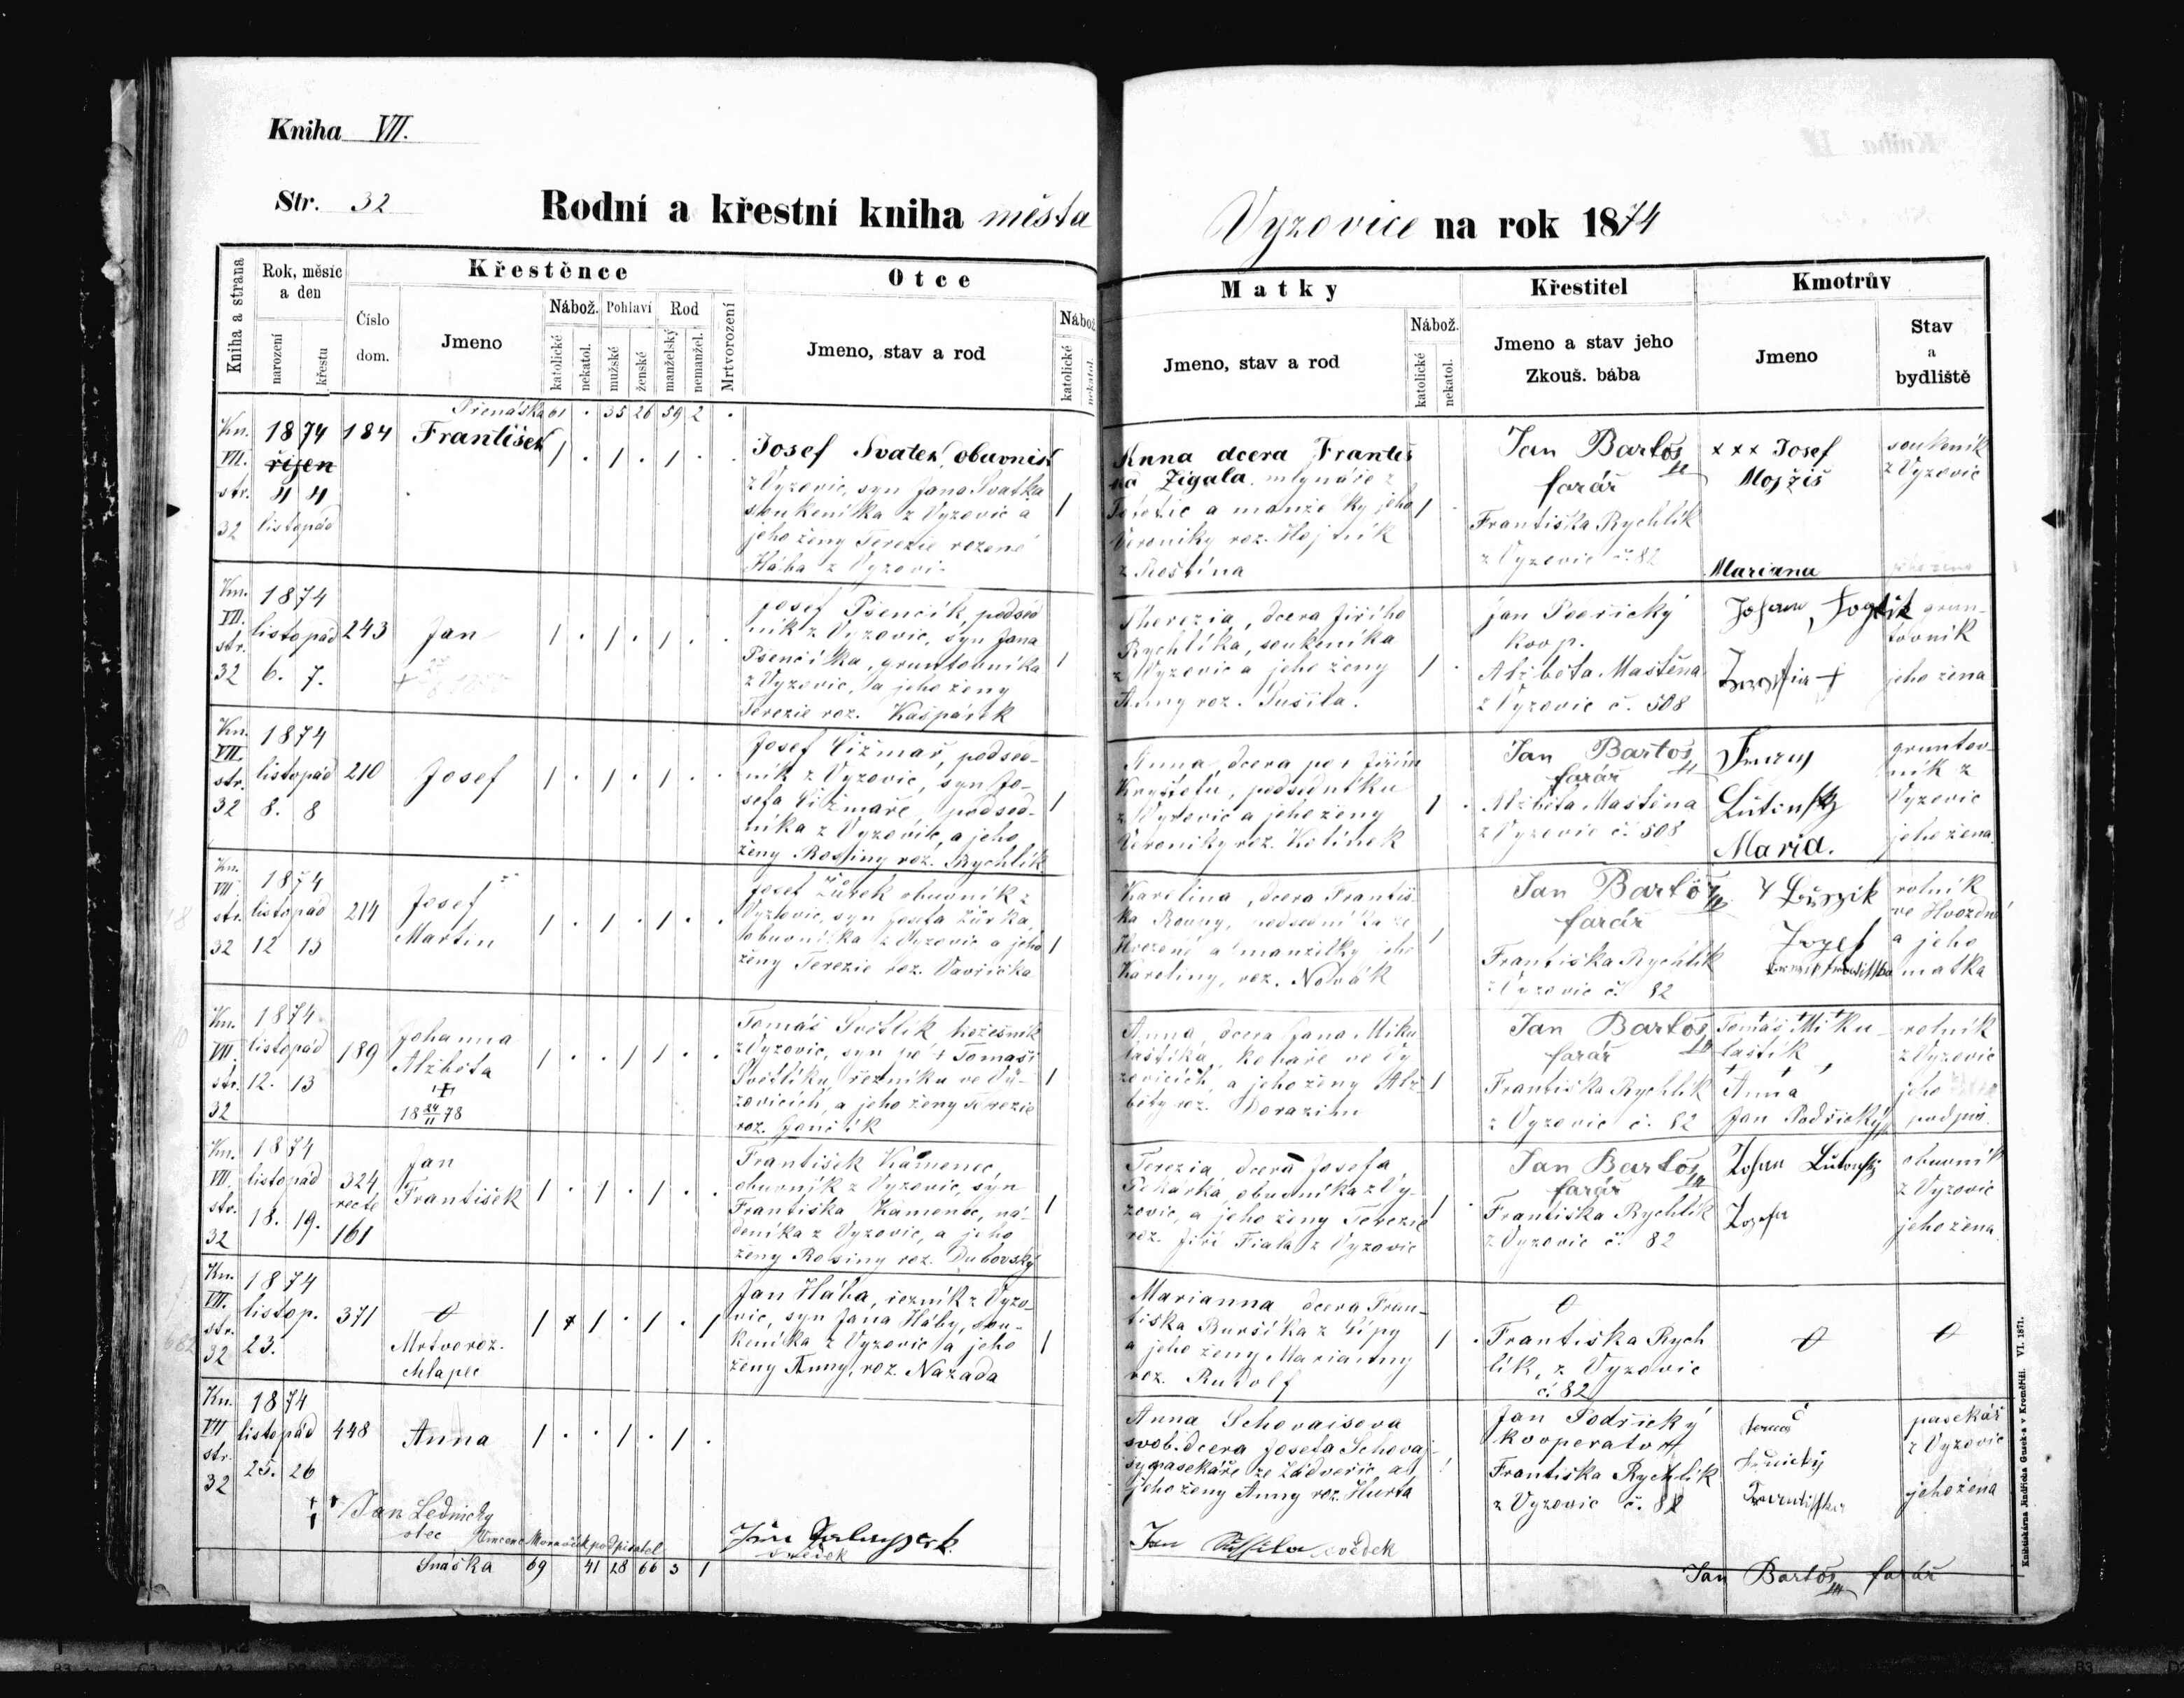 Kniha VII.
Str. 32
Rodní a křestní kniha města Vyzovice na rok 1874
Kniha a strana
Rok, měsíc a den
narození
křestu
Číslo dom.
Křestěnce
Jmeno
Nábož.
katolické
nekatol.
Pohlaví
mužské
ženské
Rod
manželský
nemanžel.
Mrtvorození
Otce
Jmeno, stav a rod
Nábož
katolické
nekatol.
Matky
Jmeno, stav a rod
Nábož.
katolické
nekatol.
Křestitel
Jmeno a stav jeho
Zkouš. bába
Kmotrův
Jmeno
Stav
a
bydliště
Přenáška 61 . 35 26 59 2 .
Kn. VII. str. 32
1874
říjen
4 4
listopád
184
František
1 . 1 . 1 . .
Josef Svatek, obuvník
z Vyzovic, syn Jana Svatka
soukeníka z Vyzovic a
jeho ženy Terezie rozené
Hába z Vyzovic
1
Anna dcera Františ
ka Zigala, mlynáře z
a manželky jeho
Veroniky roz. Hojtník
z Roštína
1 .
Jan Bartoš
farář
Františka Rychlík
z Vyzovic č. 82
xxx Josef
Mojžiš
Mariana
soukeník
z Vyzovic
jeho žena
Kn. VII. str. 32
1874
listopád
6. 7.
243
Jan
1 . 1 . 1 . .
Josef Pšenčík, podsed
ník z Vyzovic, syn Jana
Pšenčíka, gruntovníka
z Vyzovic, a jeho ženy
Terezie roz. Kašpárek
1
Therezia, dcera Jiřího
Rychlíka, soukeníka
z Vyzovic a jeho ženy
Anny roz. Sušila.
1 .
Jan Podřický
koop.
Alžběta Maštěna
z Vyzovic č. 508
Johann
grun-
tovník
jeho žena
Kn. VII. str. 32
1874
listopád
8. 8
210
Josef
1 . 1 . 1 . .
Josef Čižmař, podsed-
ník z Vyzovic, syn Jo-
sefa Čižmaře, podsed-
níka z Vyzovic, a jeho
ženy Rosiny roz. Rychlík
1
Anna, dcera po † Jiřím
podsedníku
z Vyzovic a jeho ženy
Veroniky roz. Kolínek
1 .
Jan Bartoš
farář
Alžběta Maštěna
z Vyzovic č. 508
Maria.
gruntov-
ník z
Vyzovic
jeho žena
Kn. VII. str. 32
1874
listopád
12 13
214
Josef
Martin
1 . 1 . 1 . .
Josef Žůrek obuvník z
Vyzovic, syn Josefa Žůrka,
obuvníka z Vyzovic a jeho
ženy Terezie roz. Vavřička
1
Karolina, dcera Františ-
ka podsedníka ze
a manželky jeho
Karoliny, roz. Novák
1
Jan Bartoš
farář
Františka Rychlík
z Vyzovic č. 82
Jozef
rolník
ve Hvozdné
a jeho
matka
Kn. VII. str. 32
1874
listopád
12. 13
189
Johanna
Alžběta
†
18 24/11 78
1 . . 1 1 . .
Tomáš Světlík
z Vyzovic, syn po † Tomáši
Světlíku, řezníku ve Vy-
zovicích, a jeho ženy Terezie
roz. Jančík
1
Anna, dcera Jana Miku
laštíka, koláře ve Vy
zovicích, a jeho ženy Alž-
běty roz. Dorazin
1
Jan Bartoš
farář
Františka Rychlík
z Vyzovic č. 82
Tomáš Miku-
laštík
Anna
Jan Podřický
rolník
z Vyzovic
jeho
podpis.
Kn. VII. str. 32
1874
listopád
18. 19.
324
recte
161
Jan
František
1 . 1 . 1 . .
František Kamenec,
obuvník z Vyzovic, syn
Františka Kamenec, ná-
deníka z Vyzovic, a jeho
ženy Rosiny roz. Dubovský
1
Terezia, dcera Josefa
Pekárka, obuvníka z Vy-
zovic, a jeho ženy Terezie
roz. Jiří Fiala z Vyzovic
1 .
Jan Bartoš
farář
Františka Rychlík
z Vyzovic č. 82
Johan
Jozefa
obuvník
z Vyzovic
jeho žena
Kn. VII. str. 32
1874
listop.
23.
371
0
Mrtvoroz.
chlapec
1 . 1 . 1 . 1
Jan Hába, řezník z Vyzo-
vic, syn Jana Háby, sou-
keníka z Vyzovic a jeho
ženy Anny, roz. Nazada
1
Marianna, dcera Fran-
tiška Buršíka z Lípy
a jeho ženy Marianny
roz. Rudolf
1 .
0
Františka Rych
lík, z Vyzovic
č. 82
0
0
Kn. VII str. 32
1874
listopád
25. 26
448
Anna
1 . . 1 . 1 .
Anna Schovaisova
svob. dcera Josefa Schovaj-
sy pasekáře ze Zádveřic a
jeho ženy Anny roz. Hurta
1
Jan Podřický
kooperator
Františka Rychlík
z Vyzovic č. 82
pasekář
z Vyzovic
jeho žena
††† Jan Lednický
otec
podpisatel
Jiří
svědek
Jan Sušila svědek
Snáška 69 41 28 66 3 1
Jan Bartoš farář
Knihtiskárna Jindřicha Gusek-a v Kroměříži. VI. 1871.